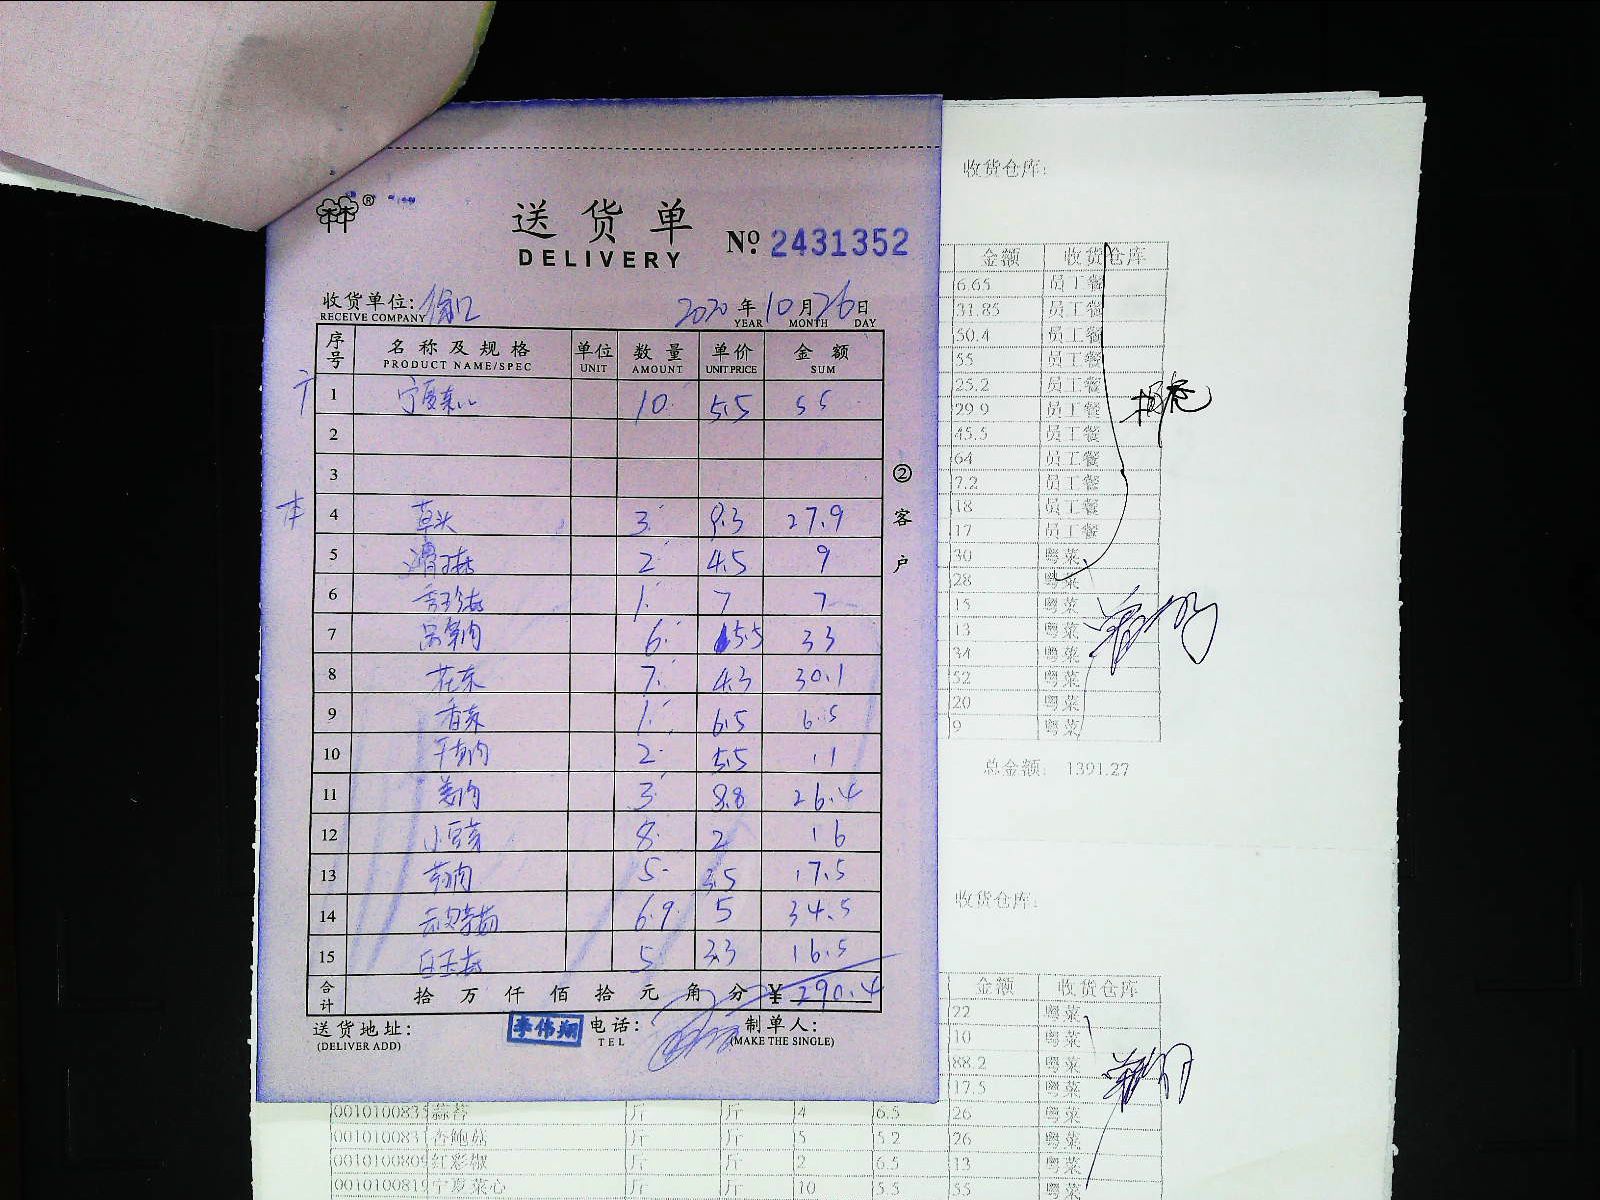 收货仓库:
®
送货单
DELIVERY
№ 2431352
收货单位:
RECEIVE COMPANY
2020 年 10 月 26 日
YEAR MONTH DAY
序号 名称及规格 单位 数量 单价 金额
PRODUCT NAME/SPEC UNIT AMOUNT UNIT PRICE SUM
1 宁夏菜心 10 5.5 55
2
3
4 草头 3 9.3 27.9
5 2 4.5 9
6 1 7 7
7 6 5.5 33
8 7 4.3 30.1
9 香菜 1 6.5 6.5
10 2 5.5 11
11 姜肉 3 8.8 26.4
12 小豆芽 8 2 16
13 5 3.5 17.5
14 6.9 5 34.5
15 5 3.3 16.5
合计 拾 万 仟 佰 拾 元 角 分 ¥ 290.4
② 客户
送货地址:
(DELIVER ADD)
李伟翔
电话:
TEL
制单人:
(MAKE THE SINGLE)
金额 收货仓库
6.65 员工餐
31.85 员工餐
50.4 员工餐
55 员工餐
25.2 员工餐
29.9 员工餐
45.5 员工餐
64 员工餐
7.2 员工餐
18 员工餐
17 员工餐
30 粤菜
28 粤菜
15 粤菜
13 粤菜
34 粤菜
52 粤菜
20 粤菜
9 粤菜
总金额: 1391.27
收货仓库:
金额 收货仓库
22 粤菜
10 粤菜
88.2 粤菜
17.5 粤菜
蒜苔 斤 斤 4 6.5 26 粤菜
杏鲍菇 斤 斤 5 5.2 26 粤菜
红彩椒 斤 斤 2 6.5 13 粤菜
宁夏菜心 斤 斤 10 5.5 55 粤菜